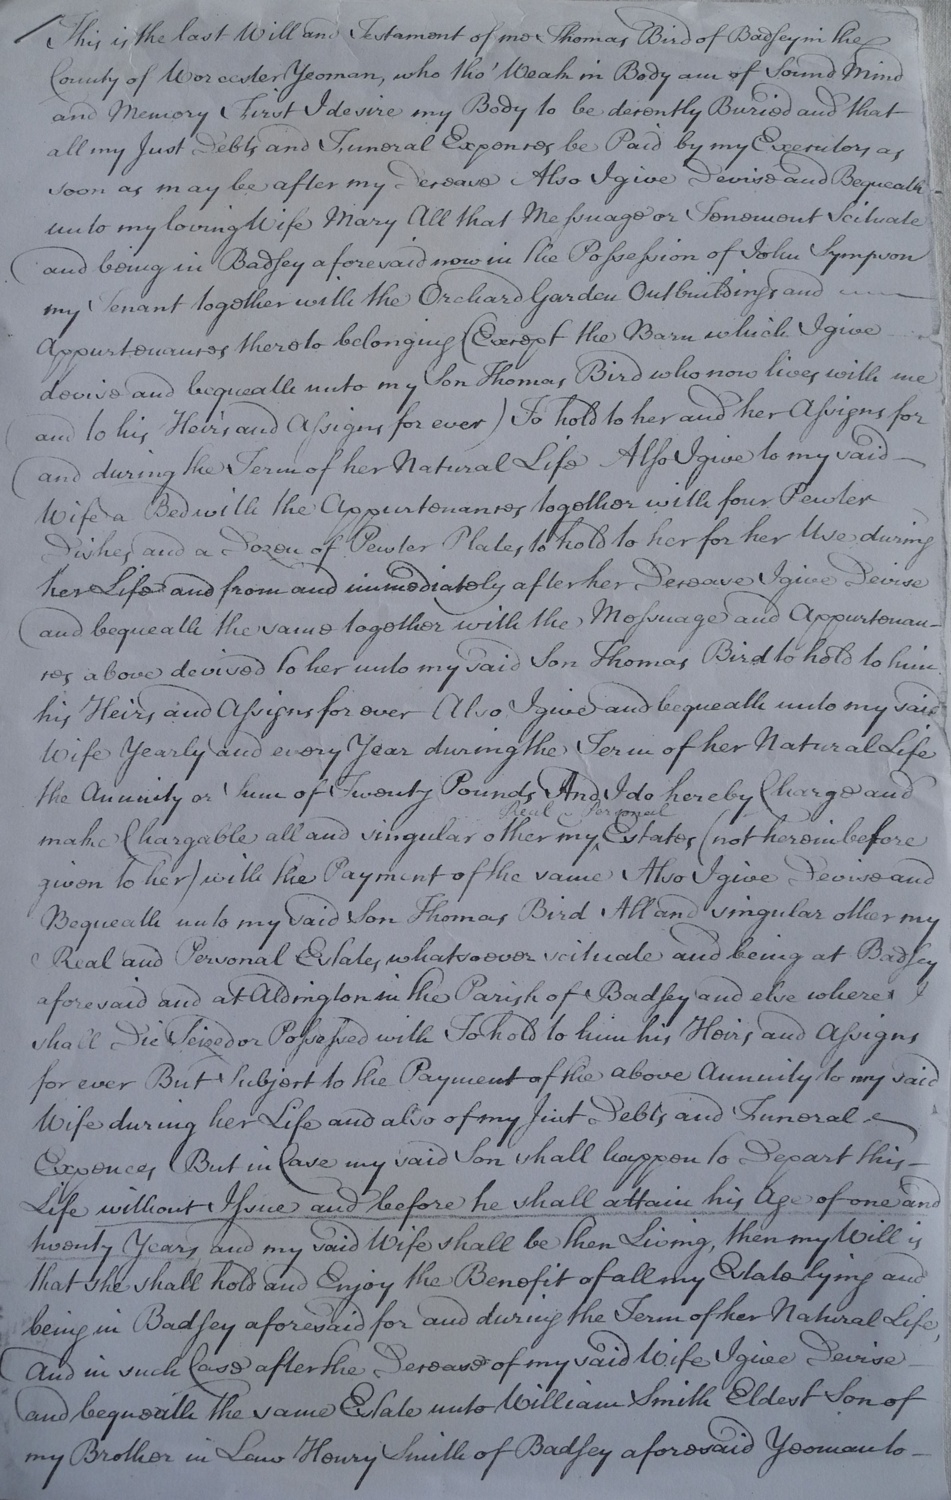 This is the last Will and Testament of me Thomas Bird of Badsey in the
County of Worcester Yeoman, who tho' Weak in Body am of Sound Mind
and Memory First I desire my Body to be decently Buried and that
all my Just Debts and Funeral Expences be Paid by my Executors as
soon as may be after my Decease Also I give Devise and Bequeath
unto my loving Wife Mary All that Messuage or Tenement Scituate
and being in Badsey aforesaid now in the Possession of John Sympson
my Tenant together with the Orchard Garden Outbuildings and
Appurtenances thereto belonging (Except the Barn which I give
devise and bequeath unto my Son Thomas Bird who now lives with me
and to his Heirs and Assigns for ever) To hold to her and her Assigns for
and during the Term of her Natural Life Also I give to my said
Wife a Bed with the Appurtenances together with four Pewter
Dishes and a Dozen of Pewter Plates to hold to her for her Use during
her Life and from and immediately after her Decease I give Devise
and bequeath the same together with the Messuage and Appurtenan-
ces above devised to her unto my said Son Thomas Bird to hold to him
his Heirs and Assigns for ever Also I give and bequeath unto my said
Wife Yearly and every Year during the Term of her Natural Life
the Annuity or Sum of Twenty Pounds And I do hereby Charge and
Real Personal
make Chargable all and singular other my Estates (not herein before
given to her) with the Payment of the same Also I give Devise and
Bequeath unto my said Son Thomas Bird All and singular other my
Real and Personal Estates whatsoever scituate and being at Badsey
aforesaid and at Aldington in the Parish of Badsey and else where I
shall Die Seized or Possessed with To hold to him his Heirs and Assigns
for ever But Subject to the Payment of the above Annuity to my said
Wife during her Life and also of my Just Debts and Funeral
Expences (But in Case my said Son shall happen to Depart this
Life without Issue and before he shall attain his Age of one and
twenty Years and my said Wife shall be then Living, then my Will is
that she shall hold and Enjoy the Benefit of all my Estate lying and
being in Badsey aforesaid for and during the Term of her Natural Life,
And in such Case after the Decease of my said Wife I give Devise
and bequeath the same Estate unto William Smith Eldest Son of
my Brother in Law Henry Smith of Badsey aforesaid Yeoman to